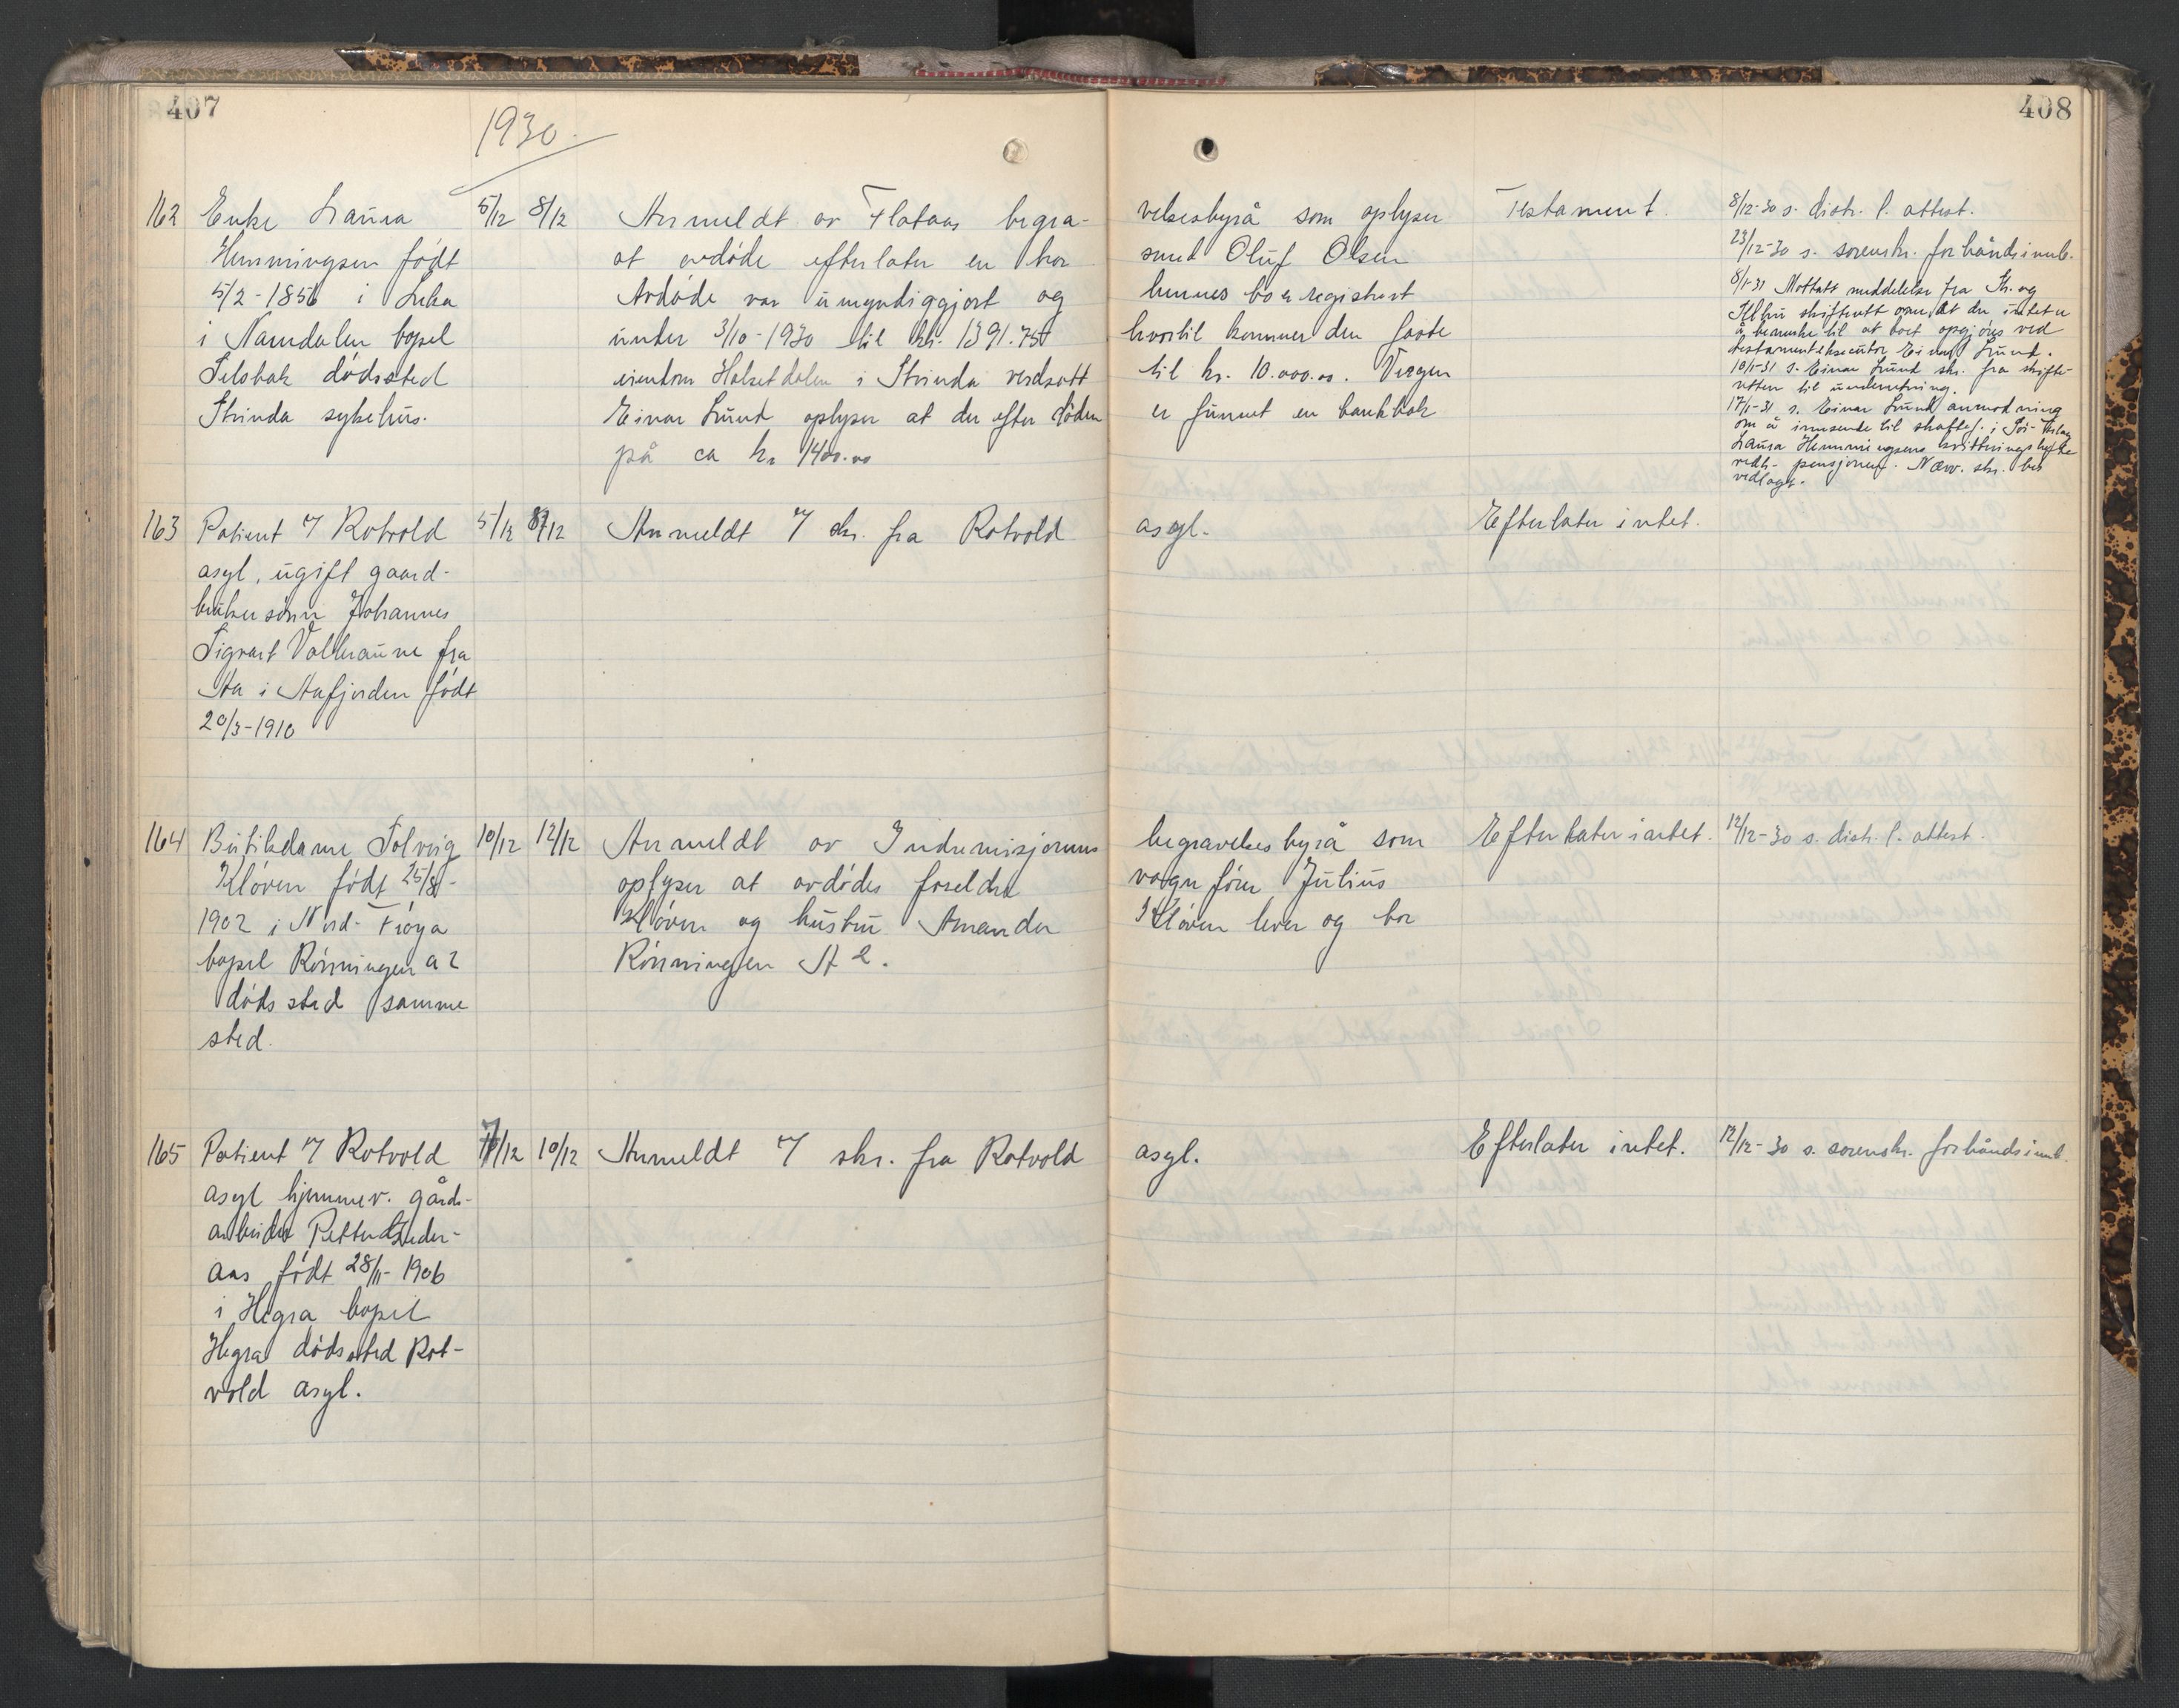 407
1930.
408
162 Enke Laura 5/12 8/12 Anmeldt av Flataas begra- velsesbyrå som oplyser Testament. 8/12-30 s. distr. l. attest.
Hemmingsen født at avdøde efterlater en bror smed Oluf Olsen 23/12-30 s. sorenskr. forhåndsinnb.
5/2-1856 i Leka Avdøde var umyndiggjort og hennes bo er registrert 8/1-31 Mottatt meddelelse fra Str. og
i Namdalen bopel under 3/10-1930 til kr. 1391.75 hvortil kommer den faste Selbu skifterett om, at der intet er
Selsbak dødssted eiendom Halsetdalen i Strinda verdsatt til kr. 10.000.00. Vergen å bemerke til at boet opgjøres ved
Strinda sykehus. Einar Lund oplyser at der efter døden er funnet en bankbok testamenteksecutor Einar Lund.
på ca kr 1400.00 10/1-31 s. Einar Lund skr. fra skifte-
retten til underretning.
17/1-31 s. Einar Lund anmodning
om å innsende til skattef. i Sør-Trlag
Laura Hemmingsens kvitteringshefte
vedk. pensjonen. Nævn. skr. bes
vedlagt.
163 Patient v/ Rotvold 5/12 8/12 Anmeldt v/ skr. fra Rotvold asyl. Efterlater intet.
asyl, ugift gaard-
brukersønn Johannes
Sigvart Valbraune fra
Aa i Aafjorden født
20/3-1910
164 Butikdame Solveig 10/12 12/12 Anmeldt av Indremisjonens begravelsesbyrå som Efterlater intet. 12/12-30 s. distr. l. attest.
Kløven født 25/8- oplyser at avdødes foreldre vognfører Julius
1902 i Nord-Frøya Kløven og hustru Amanda Kløven lever og bor
bopel Rønningen a 2 Rønningen A 2.
dødssted samme
sted.
165 Patient v/ Rotvold 7/12 10/12 Anmeldt v/ skr. fra Rotvold asyl. Efterlater intet. 12/12-30 s. sorenskr. forhåndsinnb.
asyl hjemmev. gårds-
arbeider Petter
aas født 28/11-1906
i Hegra bopel
Hegra dødssted Rot-
vold asyl.